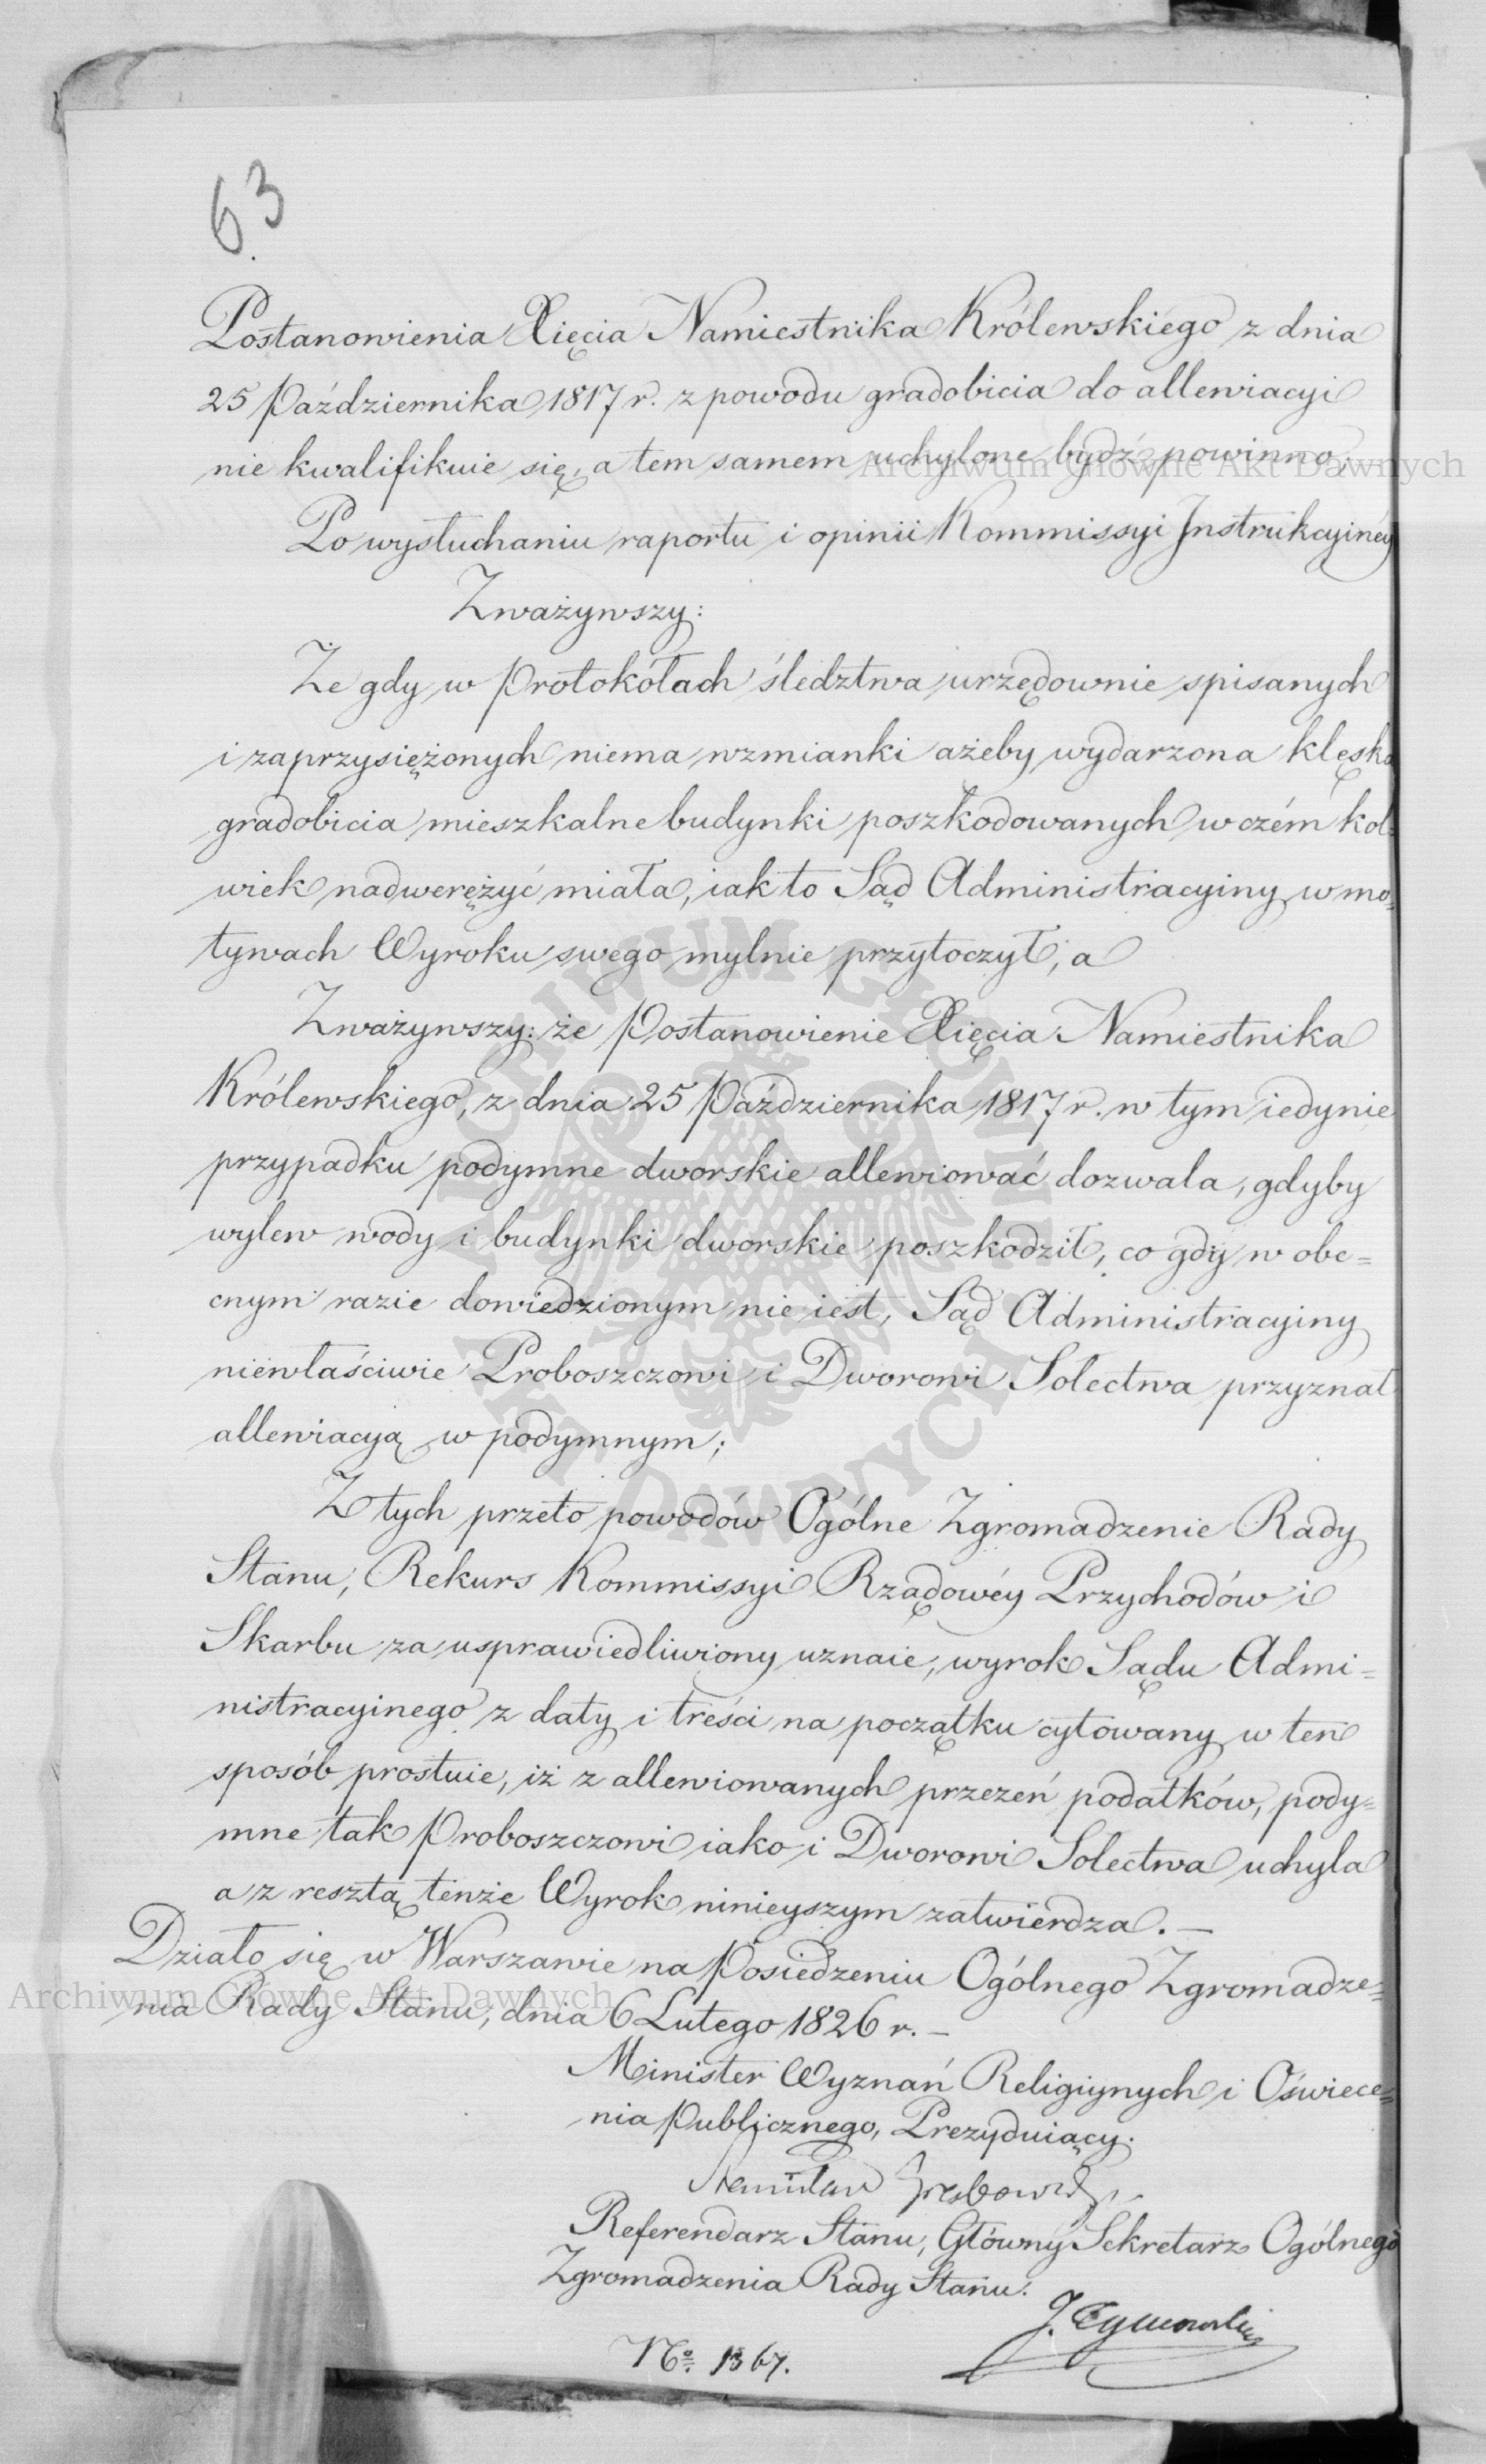 63
Postanowienia Xięcia Namiestnika Królewskiego z dnia
25 Października 1817 r. z powodu gradobicia do allewiacyi
nie kwalifikuie się, a tem samem uchylone bydź powinno,
Archiwum Główne Akt Dawnych
Po wysłuchaniu raportu i opinii Kommissyi Instrukcyinéy
Zważywszy:
Że gdy w Protokółach śledztwa urzędownie spisanych
i zaprzysiężonych niema wzmianki ażeby wydarzona klęska
gradobicia mieszkalne budynki poszkodowanych w czém kol=
wiek nadwerężyć miała, iak to Sąd Administracyiny w mo=
tywach Wyroku swego mylnie przytoczył, a
Zważywszy: że Postanowienie Xięcia Namiestnika
Królewskiego, z dnia 25 Października 1817 r. w tym iedynie
przypadku podymne dworskie allewiować dozwala, gdyby
wylew wody i budynki dworskie poszkodził, co gdy w obe=
cnym razie dowiedzionym nie iest, Sąd Administracyiny
niewłaściwie Proboszczowi i Dworowi Solectwa przyznał
allewiacyą w podymnym;
ARCHIWUM GŁÓWNE AKT DAWNYCH
Z tych przeto powodów Ogólne Zgromadzenie Rady
Stanu, Rekurs Kommissyi Rządowéy Przychodów i
Skarbu za usprawiedliwiony uznaie, wyrok Sądu Admi=
nistracyinego z daty i treści na początku cytowany w ten
sposób prostuie, iż z allewiowanych przezeń podatków, pody=
mne tak Proboszczowi iako i Dworowi Solectwa uchyla
a z resztą tenże Wyrok ninieyszym zatwierdza. —
Działo się w Warszawie na Posiedzeniu Ogólnego Zgromadze=
nia Rady Stanu, dnia 6 Lutego 1826 r. —
Archiwum Główne Akt Dawnych
Minister Wyznań Religiynych i Oświece=
nia Publicznego, Prezyduiący.
Stanisław Grabowski
Referendarz Stanu, Główny Sekretarz Ogólnego
Zgromadzenia Rady Stanu.
J. Tymowski
No. 1367.